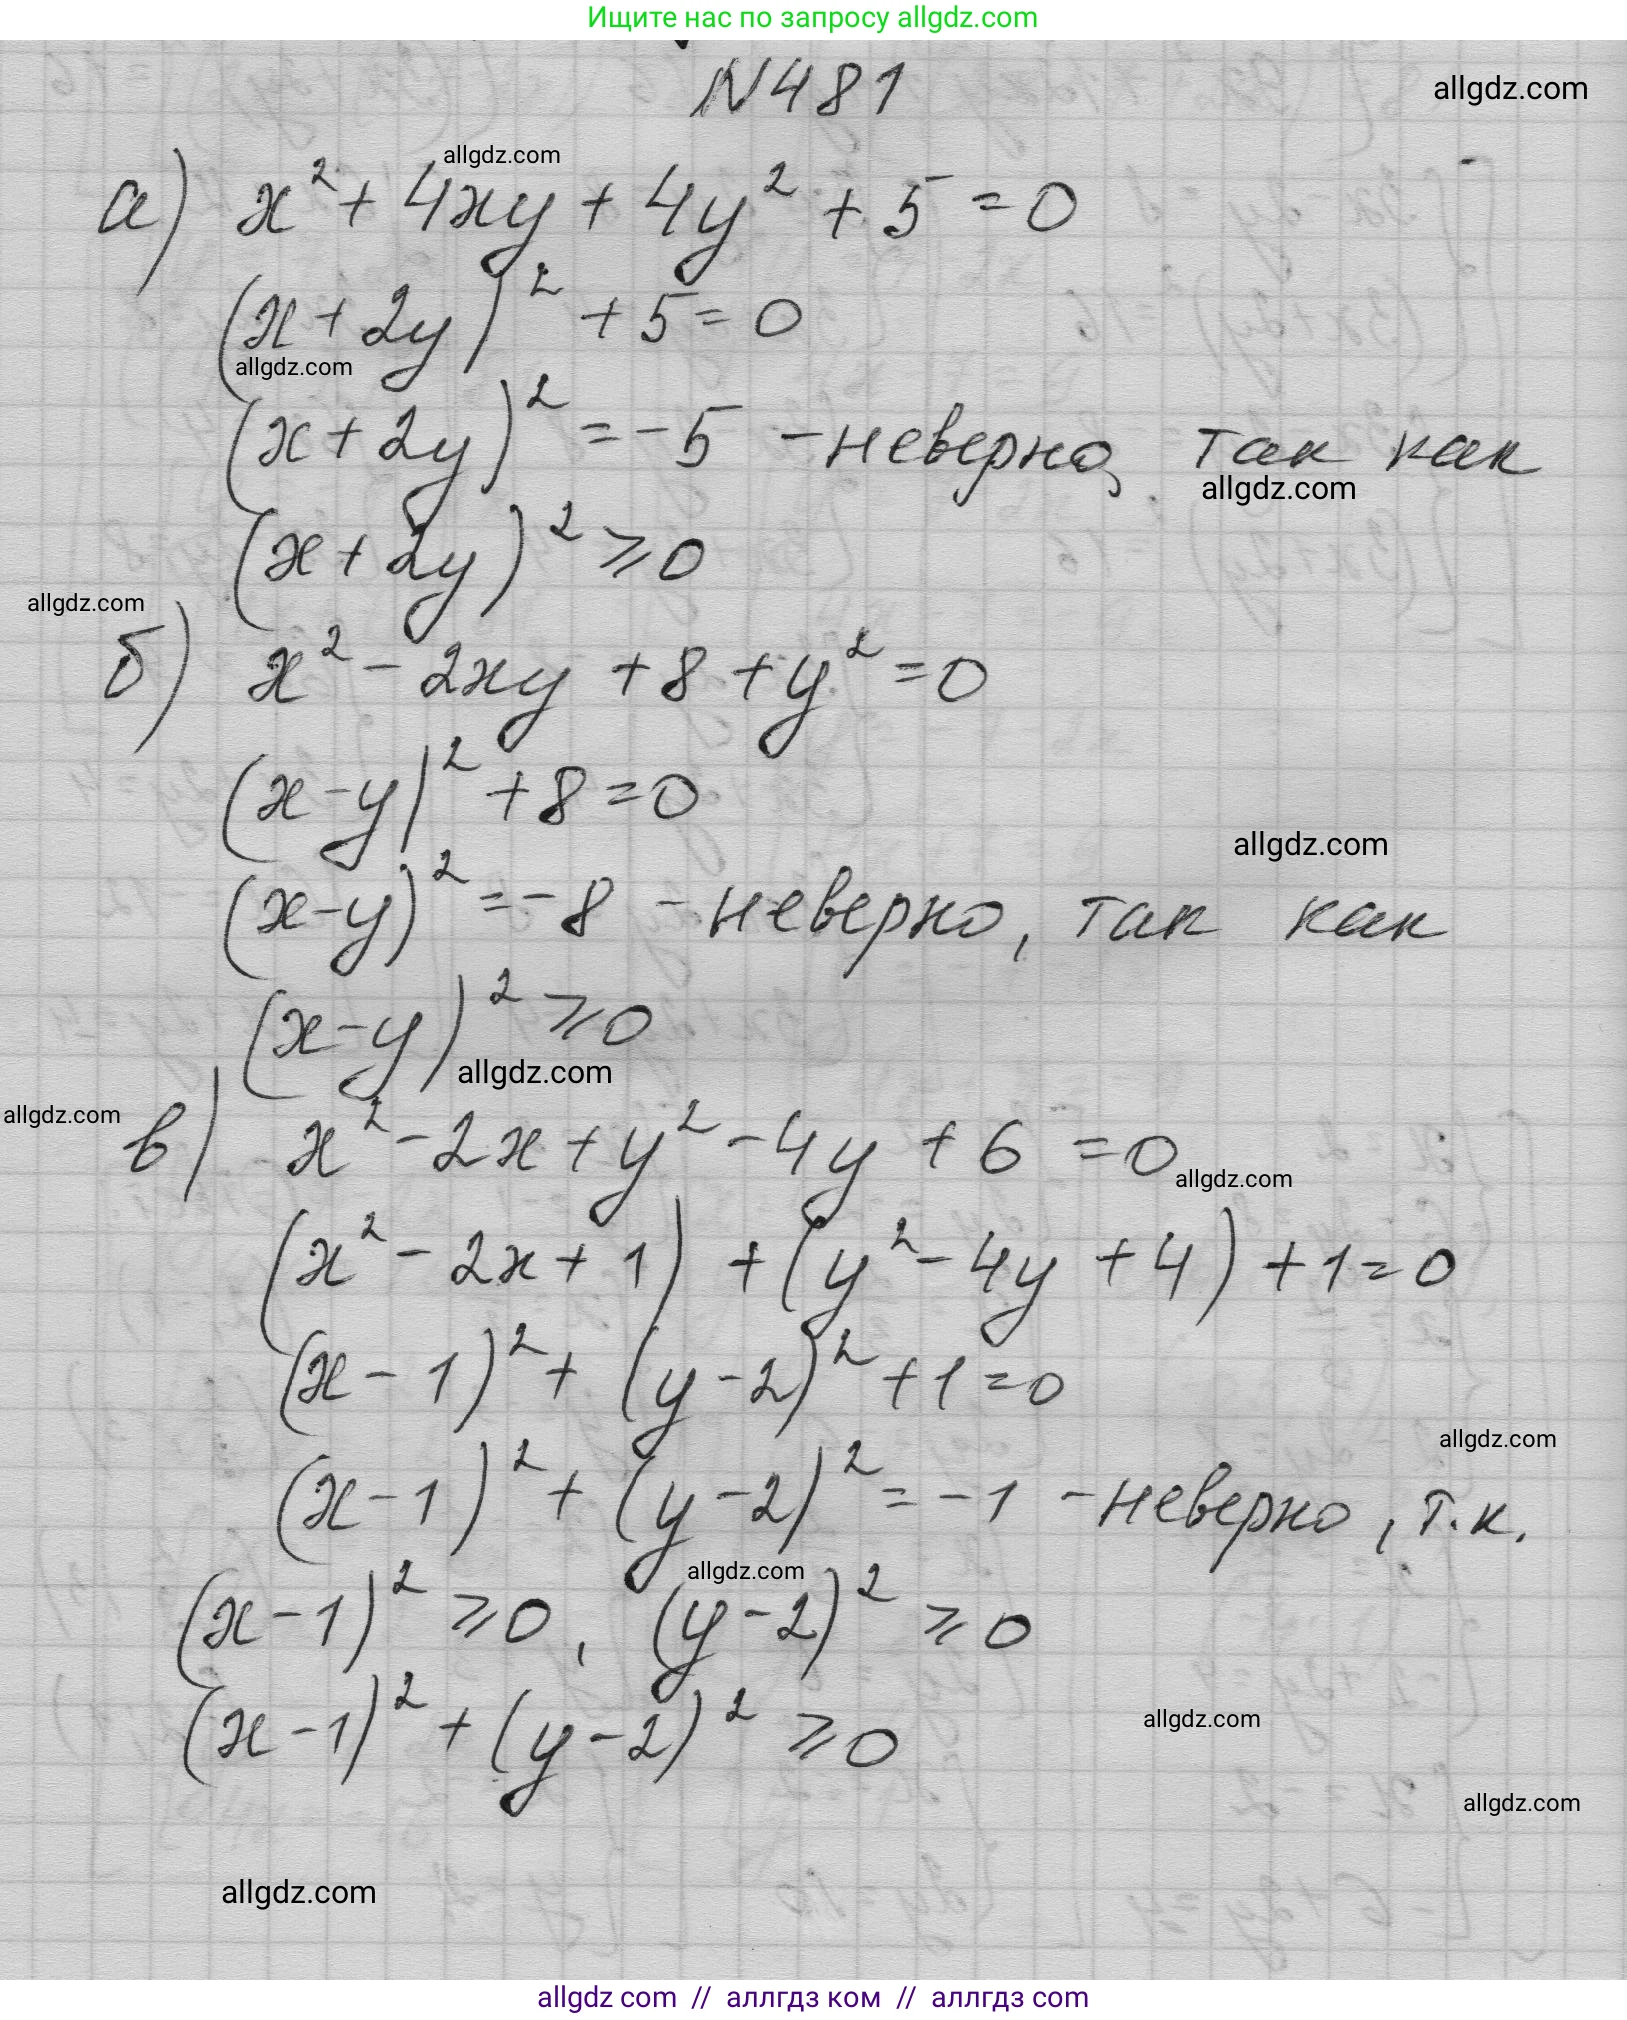 Ищите нас по запросу allgdz.com
N481
allgdz.com
allgdz.com
а) x² + 4xy + 4y² + 5 = 0
(x + 2y)² + 5 = 0
allgdz.com
(x + 2y)² = -5 - неверно, так как
allgdz.com
(x + 2y)² ⩾ 0
allgdz.com
б) x² - 2xy + 8 + y² = 0
(x - y)² + 8 = 0
allgdz.com
(x - y)² = -8 - неверно, так как
(x - y)² ⩾ 0
allgdz.com
allgdz.com
в) x² - 2x + y² - 4y + 6 = 0
allgdz.com
(x² - 2x + 1) + (y² - 4y + 4) + 1 = 0
(x - 1)² + (y - 2)² + 1 = 0
allgdz.com
(x - 1)² + (y - 2)² = -1 - неверно, т.к.
allgdz.com
(x - 1)² ⩾ 0, (y - 2)² ⩾ 0
(x - 1)² + (y - 2)² ⩾ 0
allgdz.com
allgdz.com
allgdz.com
allgdz com // аллгдз ком // аллгдз com